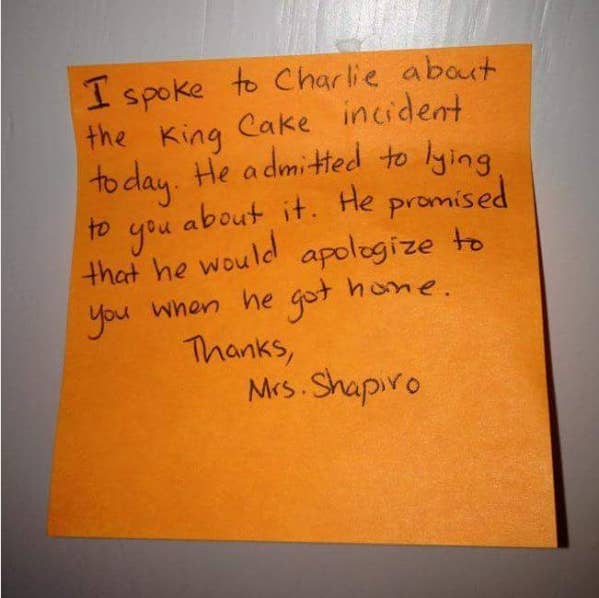 I spoke to Charlie about
the King Cake incident
today. He admitted to lying
to you about it. He promised
that he would apologize to
you when he got home.
Thanks,
Mrs. Shapiro